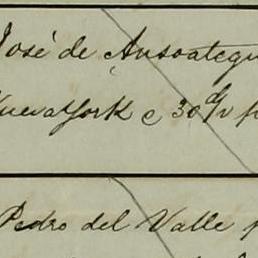 José de Ansoategu
Nueva York c 30 d/v p
Pedro del Valle p